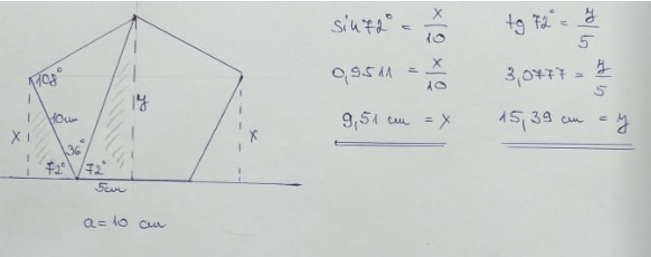 108°
10cm
y
x
x
36°
72° 72°
5cm
a = 10 cm
sin 72° = x/10
0,9511 = x/10
9,51 cm = x
tg 72° = y/5
3,0777 = y/5
15,39 cm = y